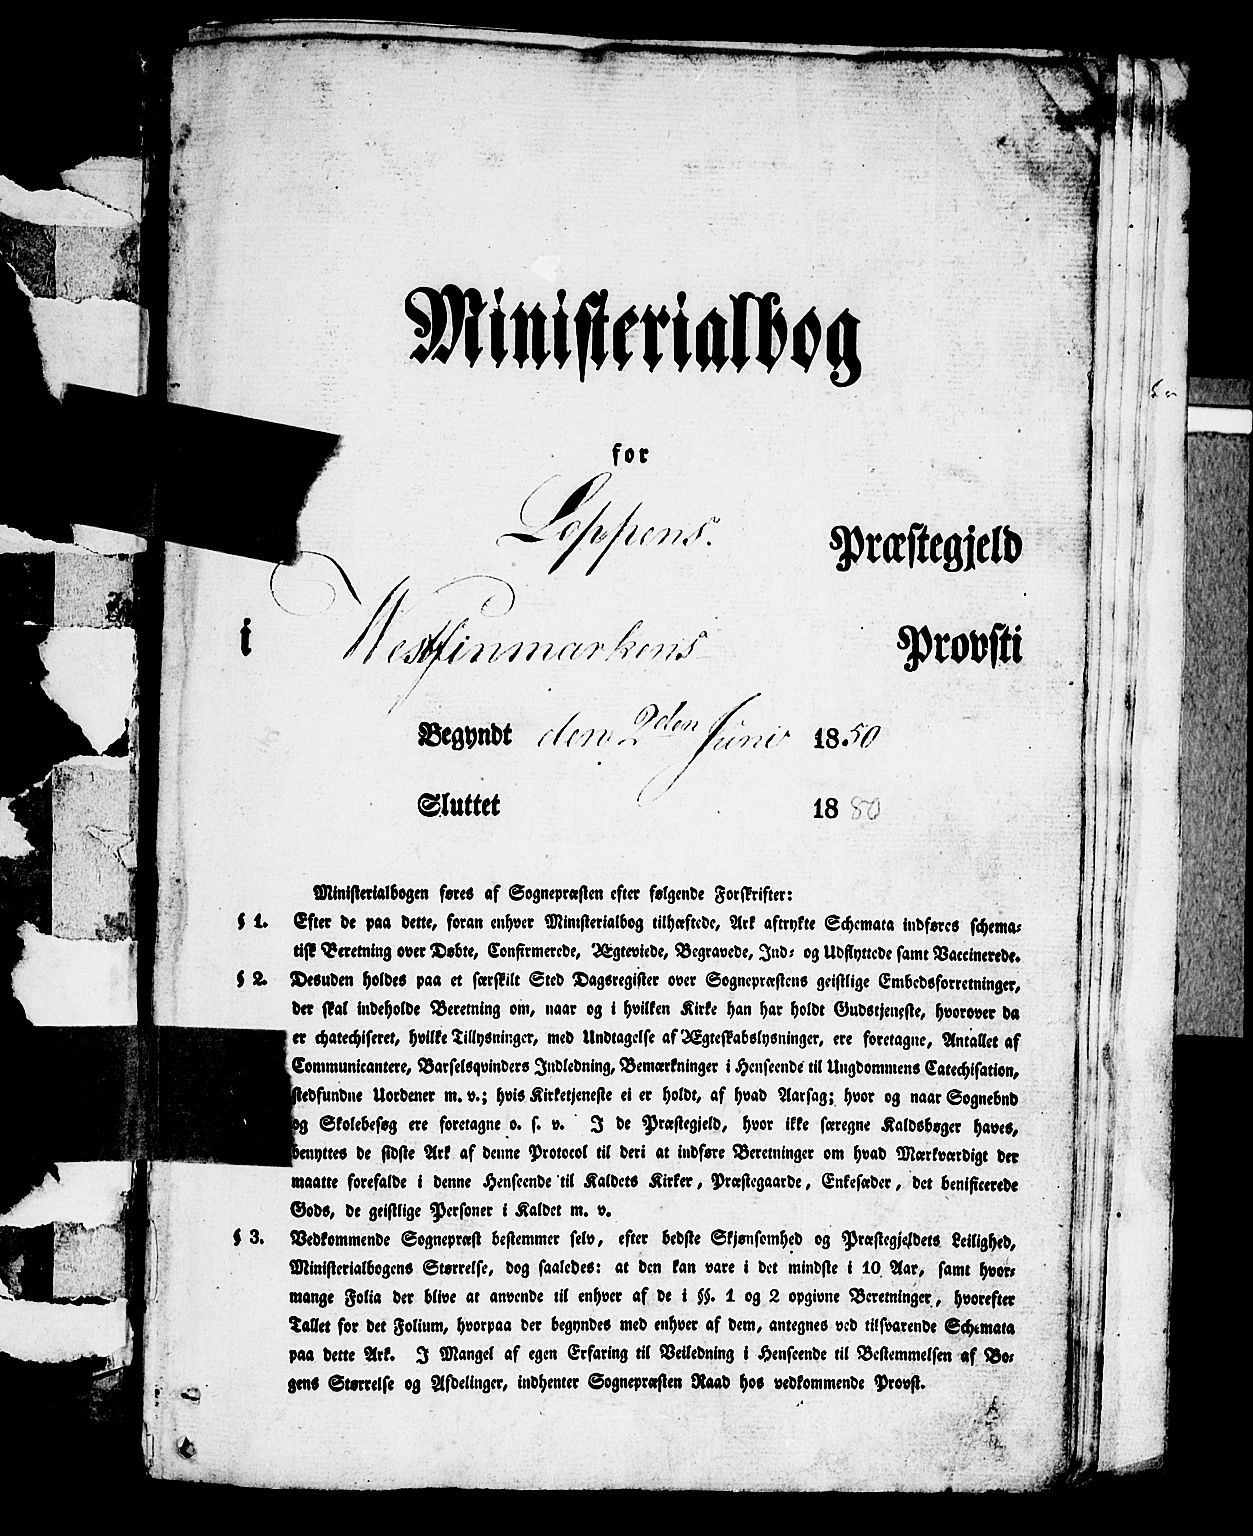 Ministerialbog
for
Loppens. Præstegjeld
i Westfinmarkens Provsti
Begyndt den 2den Juni 1850
Sluttet 1880
Ministerialbogen føres af Sognepræsten efter følgende Forskrifter:
§ 1. Efter de paa dette, foran enhver Ministerialbog tilhæftede, Ark aftrykte Schemata indføres schema-
tisk Beretning over Døbte, Confirmerede, Ægteviede, Begravede, Ind- og Udflyttede samt Vaccinerede.
§ 2. Desuden holdes paa et særskilt Sted Dagsregister over Sognepræstens geistlige Embedsforretninger,
der skal indeholde Beretning om, naar og i hvilken Kirke han har holdt Gudstjeneste, hvorover da
er chatechiseret, hvilke Tillysninger, med Undtagelse af Ægteskabslysninger, ere foretagne, Antallet af
Communicantere, Barselsqvinders Indledning, Bemærkninger i Henseende til Ungdommens Catechisation,
stedfundne Uordener m. v.; hvis Kirketjeneste ei er holdt, af hvad Aarsag; hvor og naar Sognebud
og Skolebesøg ere foretagne o. s. v. I de Præstegjeld, hvor ikke særegne Kaldsbøger haves,
benyttes de sidste Ark af denne Protocol til deri at indføre Beretninger om hvad Mærkværdigt der
maatte forefalde i denne Henseende til Kaldets Kirker, Præstegaarde, Enkesæder, det benificerede
Gods, de geistlige Personer i Kaldet m. v.
§ 3. Vedkommende Sognepræst bestemmer selv, efter bedste Skjønsomhed og Præstegjeldets Leilighed,
Ministerialbogens Størrelse, dog saaledes: at den kan vare i det mindste i 10 Aar, samt hvor-
mange Folia der blive at anvende til enhver af de i §§. 1 og 2 opgivne Beretninger, hvorefter
Tallet for det Folium, hvorpaa der begyndes med enhver af dem, antegnes ved tilsvarende Schemata
paa dette Ark. I Mangel af egen Erfaring til Veiledning i Henseende til Bestemmelsen af Bo-
gens Størrelse og Afdelinger, indhenter Sognepræsten Raad hos vedkommende Provst.